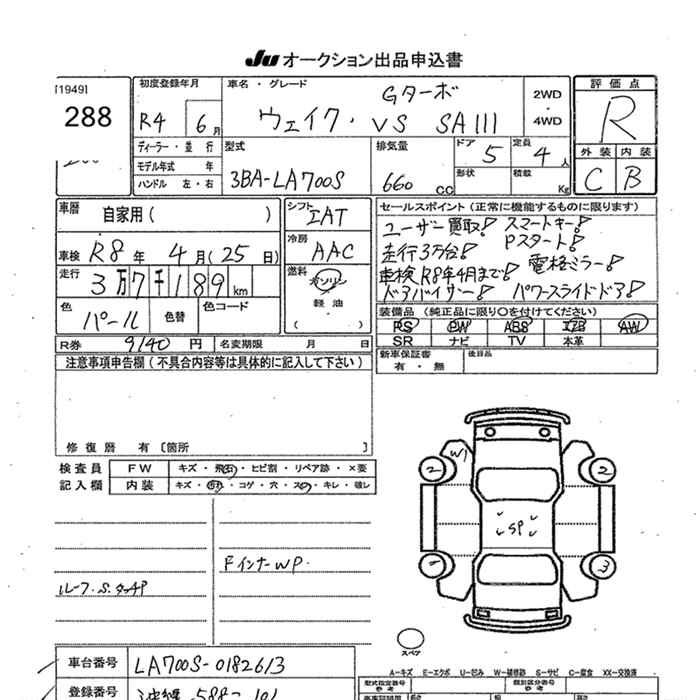 JU オークション出品申込書
[1949]
288
初度登録年月
R4 6月
ディーラー・並行
モデル年式 年
ハンドル 左・右
車名・グレード
Gターボ
ウェイク・ VS SAIII
2WD
・
4WD
評価点
R
外装 内装
C B
型式
3BA-LA700S
排気量
660 CC
ドア 5
形状
定員 4人
積載 Kg
車歴 自家用( )
車検 R8年 4月(25日)
走行 3万7千189km
色 パール 色替 色コード
シフト IAT
冷房 AAC
燃料
ガソリン
・
軽油
( )
セールスポイント(正常に機能するものに限ります)
ユーザー買取! スマートキー!
走行3万台! Pスタート!
車検R8年4月まで! 電格ミラー!
ドアバイザー! パワースライドドア!
装備品(純正品に限り○を付けてください)
PS PW ABS エアB AW
SR ナビ TV 本革
R券 9140円 名変期限 月 日
新車保証書
有・無
後日品
注意事項申告欄(不具合内容等は具体的に記入して下さい)
修復歴 有〔箇所 〕
検査員
記入欄
FW キズ・飛石・ヒビ割・リペア跡・×要
内装 キズ・汚れ・コゲ・穴・スレ・キレ・破レ
ルーフ.S.タッチP
FインナーWP.
W1
2
2
SP
2
3
スペア
A-キズ E-エクボ U-凹み W-補修跡 S-サビ C-腐食 XX-交換済
車台番号 LA700S-0182613
登録番号
型式指定番号
類別区分番号